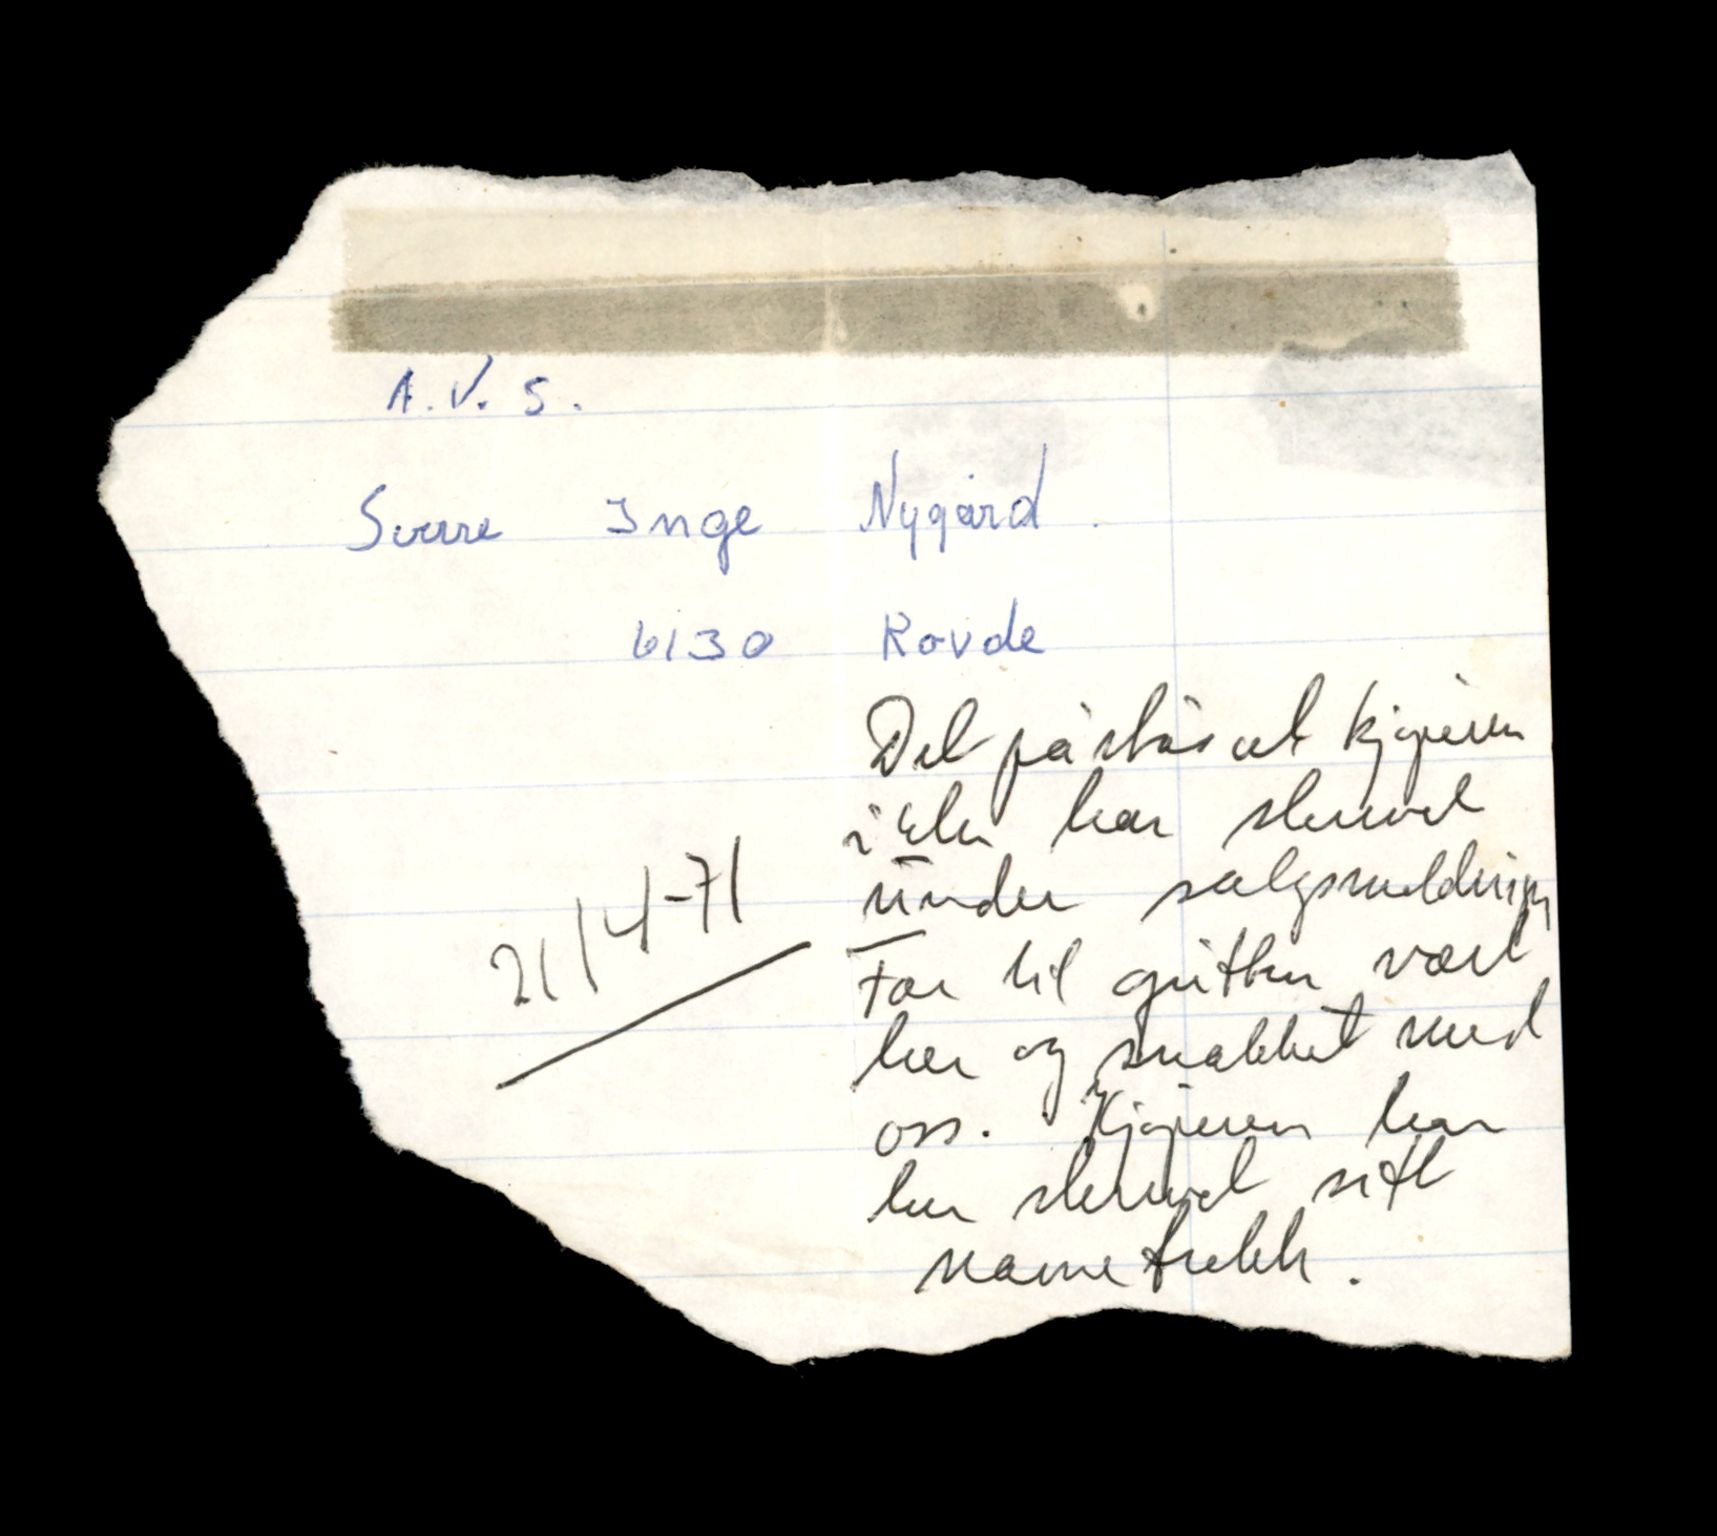 A.V.S.
Sverre Inge Nygård.
6130 Rovde
Det påstås at kjøperen
ikke har skrevet
under salgsmeldingen
Far til gutten vært
her og snakket med
oss. Kjøperen har
her skrevet sitt
navnetrekk.
21/4-71